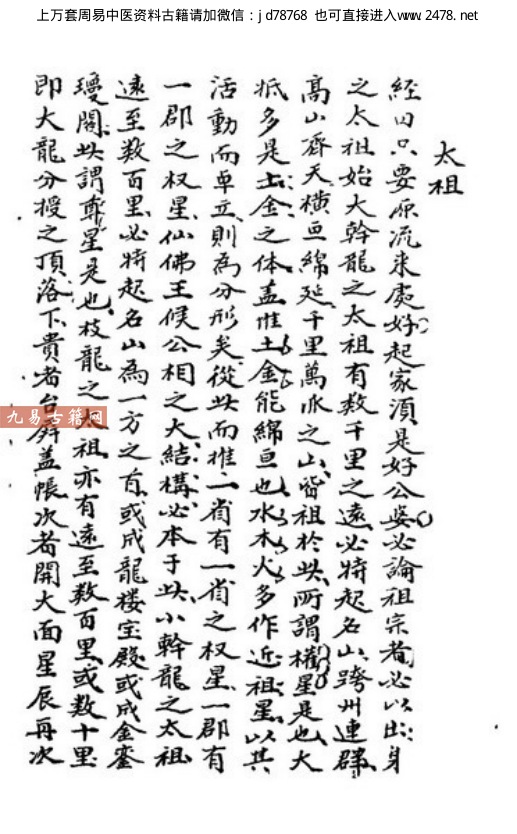 上万套周易中医资料古籍请加微信：jd78768 也可直接进入www.2478.net
太祖
經曰只要原流来處好起家須是好公婆必論祖宗者必以出身
之太祖始大幹龍之太祖有数千里之遠必特起名山跨州連群
高山齊天横亘綿延千里萬派之山皆祖於此所謂權星是也大
抵多是土金之体盖惟土金能綿亘也水木火多作近祖星以其
活動而卓立則為分形矣從此而推一省有一省之权星一郡有
一郡之权星仙佛王候公相之大結構必本于此小幹龍之太祖
遠至数百里必特起名山為一方之首或成龍楼宝殿或成金銮
瓊閣此謂尊星是也枝龍之太祖亦有遠至数百里或数十里
即大龍分授之頂落下貴者台屏盖帳次者開大面星辰再次
九易古籍网